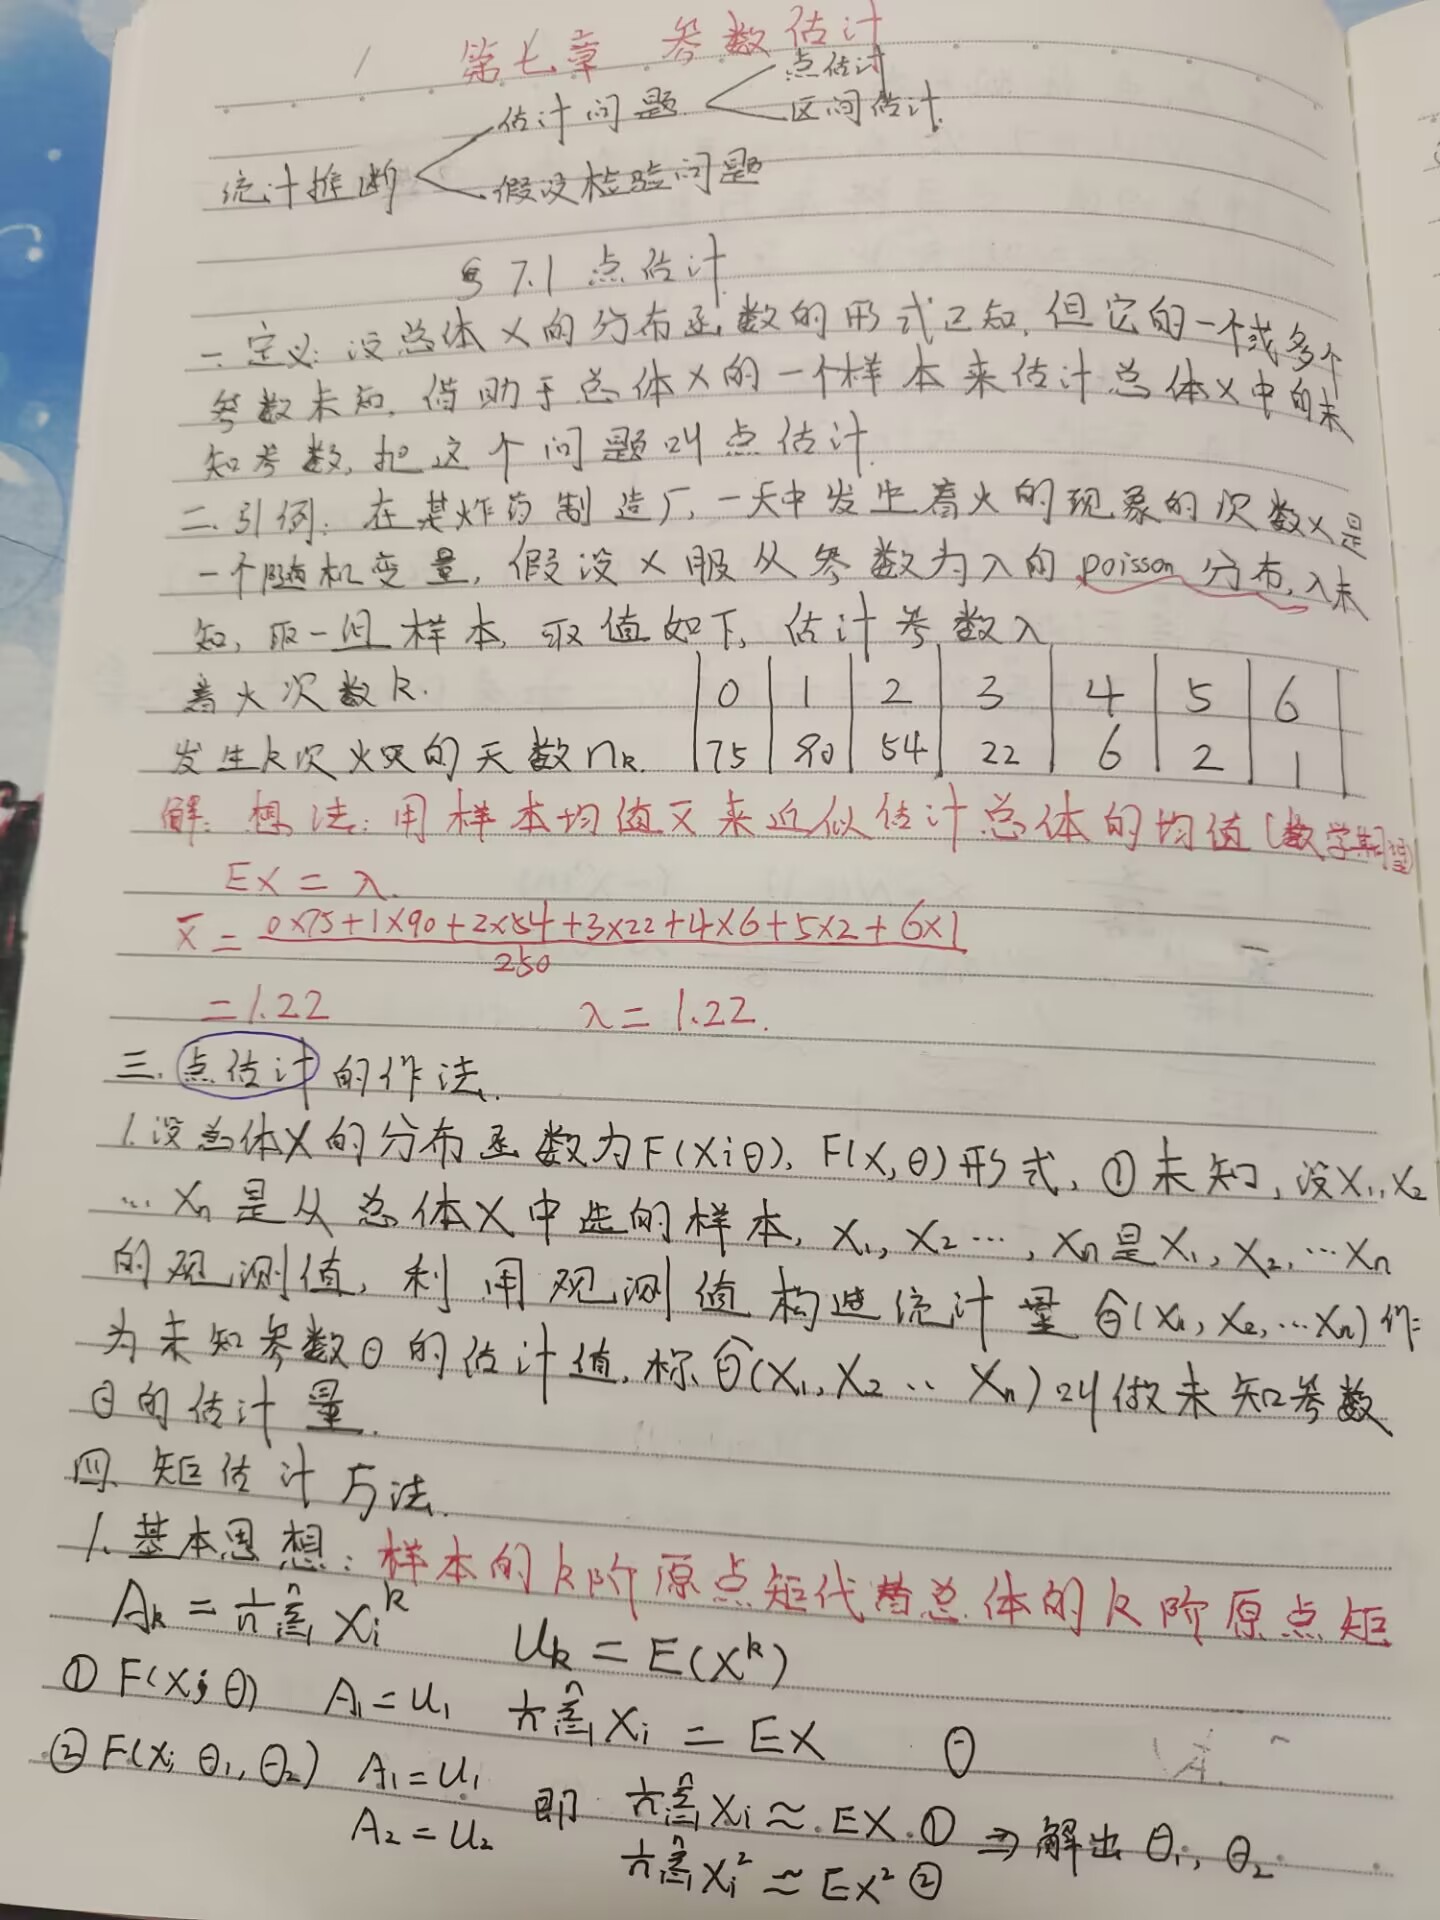 第七章 参数估计
点估计
估计问题
区间估计.
统计推断
假设检验问题
§7.1 点估计
一.定义:设总体X的分布函数的形式已知,但它的一个或多个
参数未知,借助于总体X的一个样本来估计总体X中的未
知参数,把这个问题叫点估计.
二.引例:在某炸药制造厂,一天中发生着火的现象的次数X是
一个随机变量,假设X服从参数为λ的poisson分布,λ未
知,取一组样本,取值如下,估计参数λ
着火次数k. 0 1 2 3 4 5 6
发生k次火灾的天数nk. 75 90 54 22 6 2 1
解:想法:用样本均值X̄来近似估计总体的均值(数学期望)
EX=λ.
X̄=(0×75+1×90+2×54+3×22+4×6+5×2+6×1)/250
=1.22 λ=1.22.
三.点估计的作法.
1.设总体X的分布函数为F(X;θ),F(X,θ)形式,①未知,设X₁,X₂
…Xn是从总体X中选的样本,X₁,X₂…,Xn是X₁,X₂,…Xn
的观测值,利用观测值构造统计量θ̂(X₁,X₂,…Xn)作
为未知参数θ的估计值,称θ̂(X₁,X₂…Xn)叫做未知参数
θ的估计量.
四.矩估计方法.
1.基本思想:样本的k阶原点矩代替总体的k阶原点矩
Ak=1/n Σⁿᵢ₌₁ Xᵢᵏ uk=E(Xᵏ)
①F(X;θ) A₁=u₁ 1/n Σⁿᵢ₌₁ Xᵢ=EX θ
②F(X;θ₁,θ₂) A₁=u₁ 即 1/n Σⁿᵢ₌₁ Xᵢ≈EX.① ⇒解出θ₁,θ₂
A₂=u₂ 1/n Σⁿᵢ₌₁ Xᵢ²≈EX²②